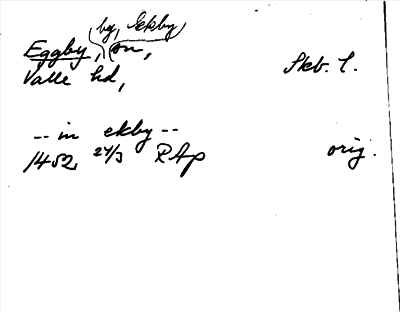 by, Ekby
Eggby, sn,
Valle hd, Skb. l.
-- in ekby --
1452 24/3 RAp orig.